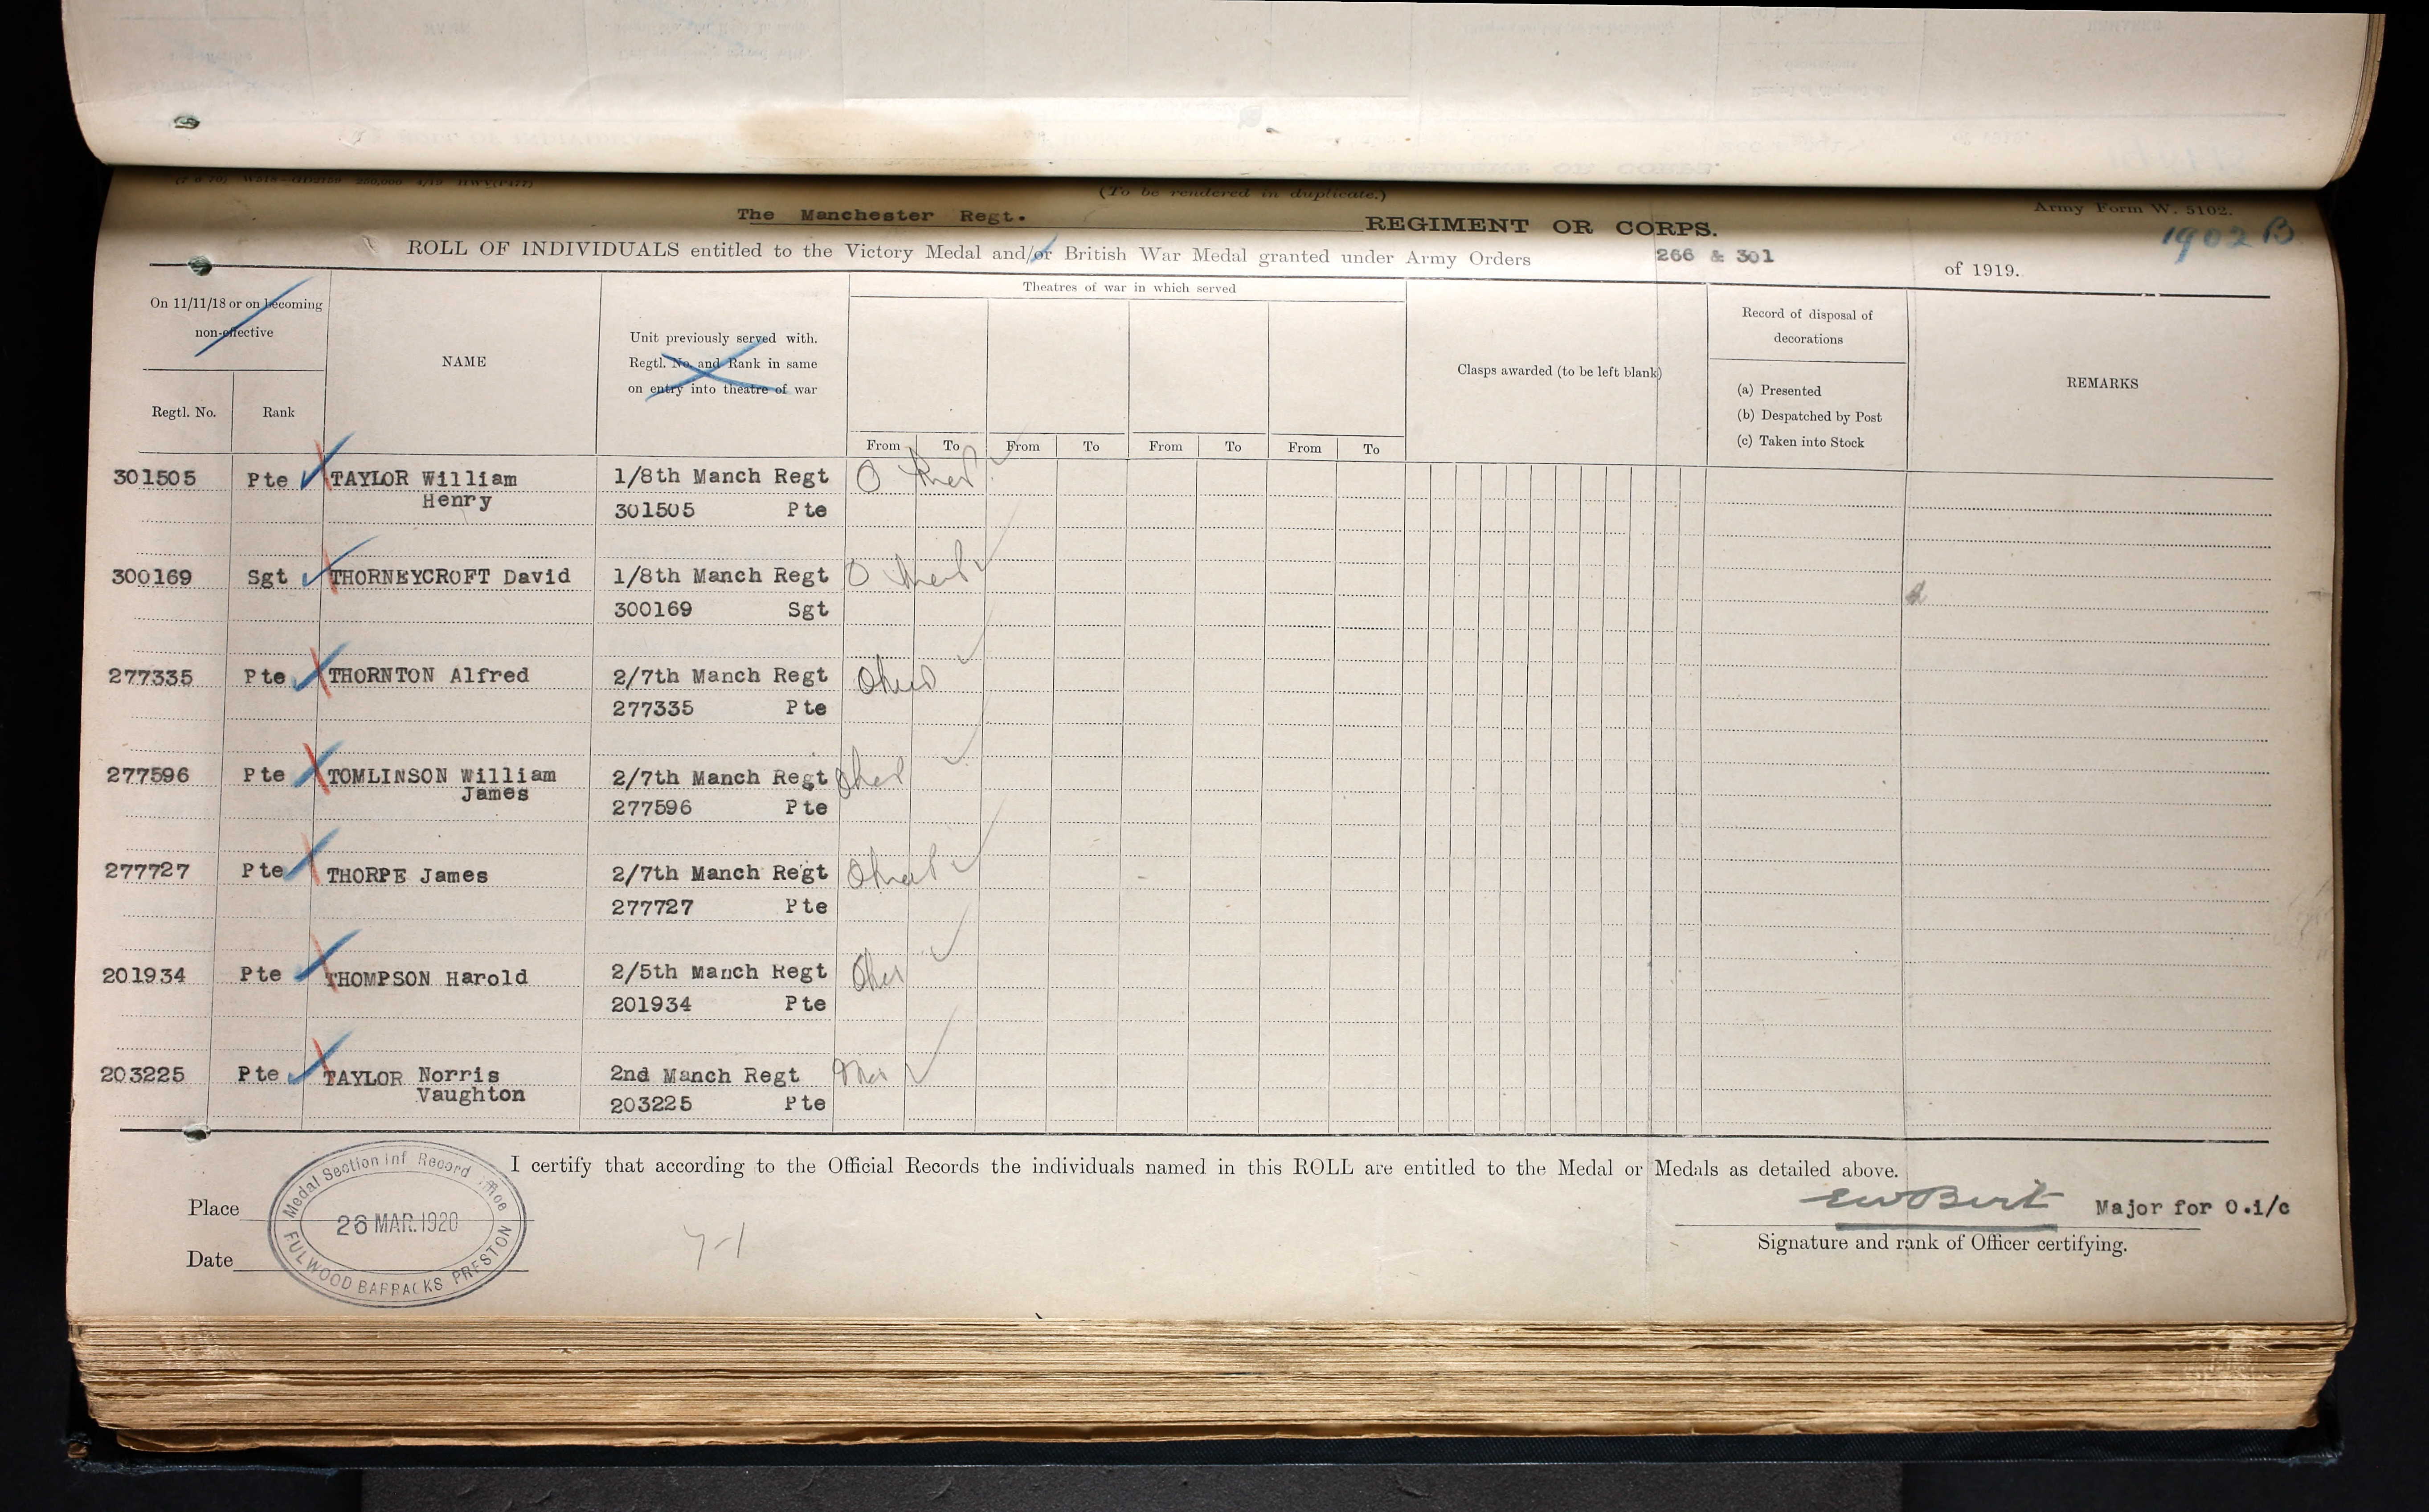 (To be rendered in duplicate.)
Army Form W. 5102.
The Manchester Regt. REGIMENT OR CORPS.
1902 B
ROLL OF INDIVIDUALS entitled to the Victory Medal and/or British War Medal granted under Army Orders 266 & 301 of 1919.
On 11/11/18 or on becoming non-effective
Regtl. No.
Rank
NAME
Unit previously served with.
Regtl. No. and Rank in same
on entry into theatre of war
Theatres of war in which served
From To From To From To From To
Clasps awarded (to be left blank)
Record of disposal of
decorations
(a) Presented
(b) Despatched by Post
(c) Taken into Stock
REMARKS
301505 Pte TAYLOR William 1/8th Manch Regt
Henry
301505 Pte
300169 Sgt THORNEYCROFT David 1/8th Manch Regt
300169 Sgt
277335 Pte THORNTON Alfred 2/7th Manch Regt
277335 Pte
277596 Pte TOMLINSON William 2/7th Manch Regt
James
277596 Pte
277727 Pte THORPE James 2/7th Manch Regt
277727 Pte
201934 Pte THOMPSON Harold 2/5th Manch Regt
201934 Pte
203225 Pte TAYLOR Norris 2nd Manch Regt
Vaughton
203225 Pte
I certify that according to the Official Records the individuals named in this ROLL are entitled to the Medal or Medals as detailed above.
Place
Date
Medal Section Inf Record Office
26 MAR. 1920
FULWOOD BARRACKS PRESTON
EW Birt Major for O.i/c
Signature and rank of Officer certifying.